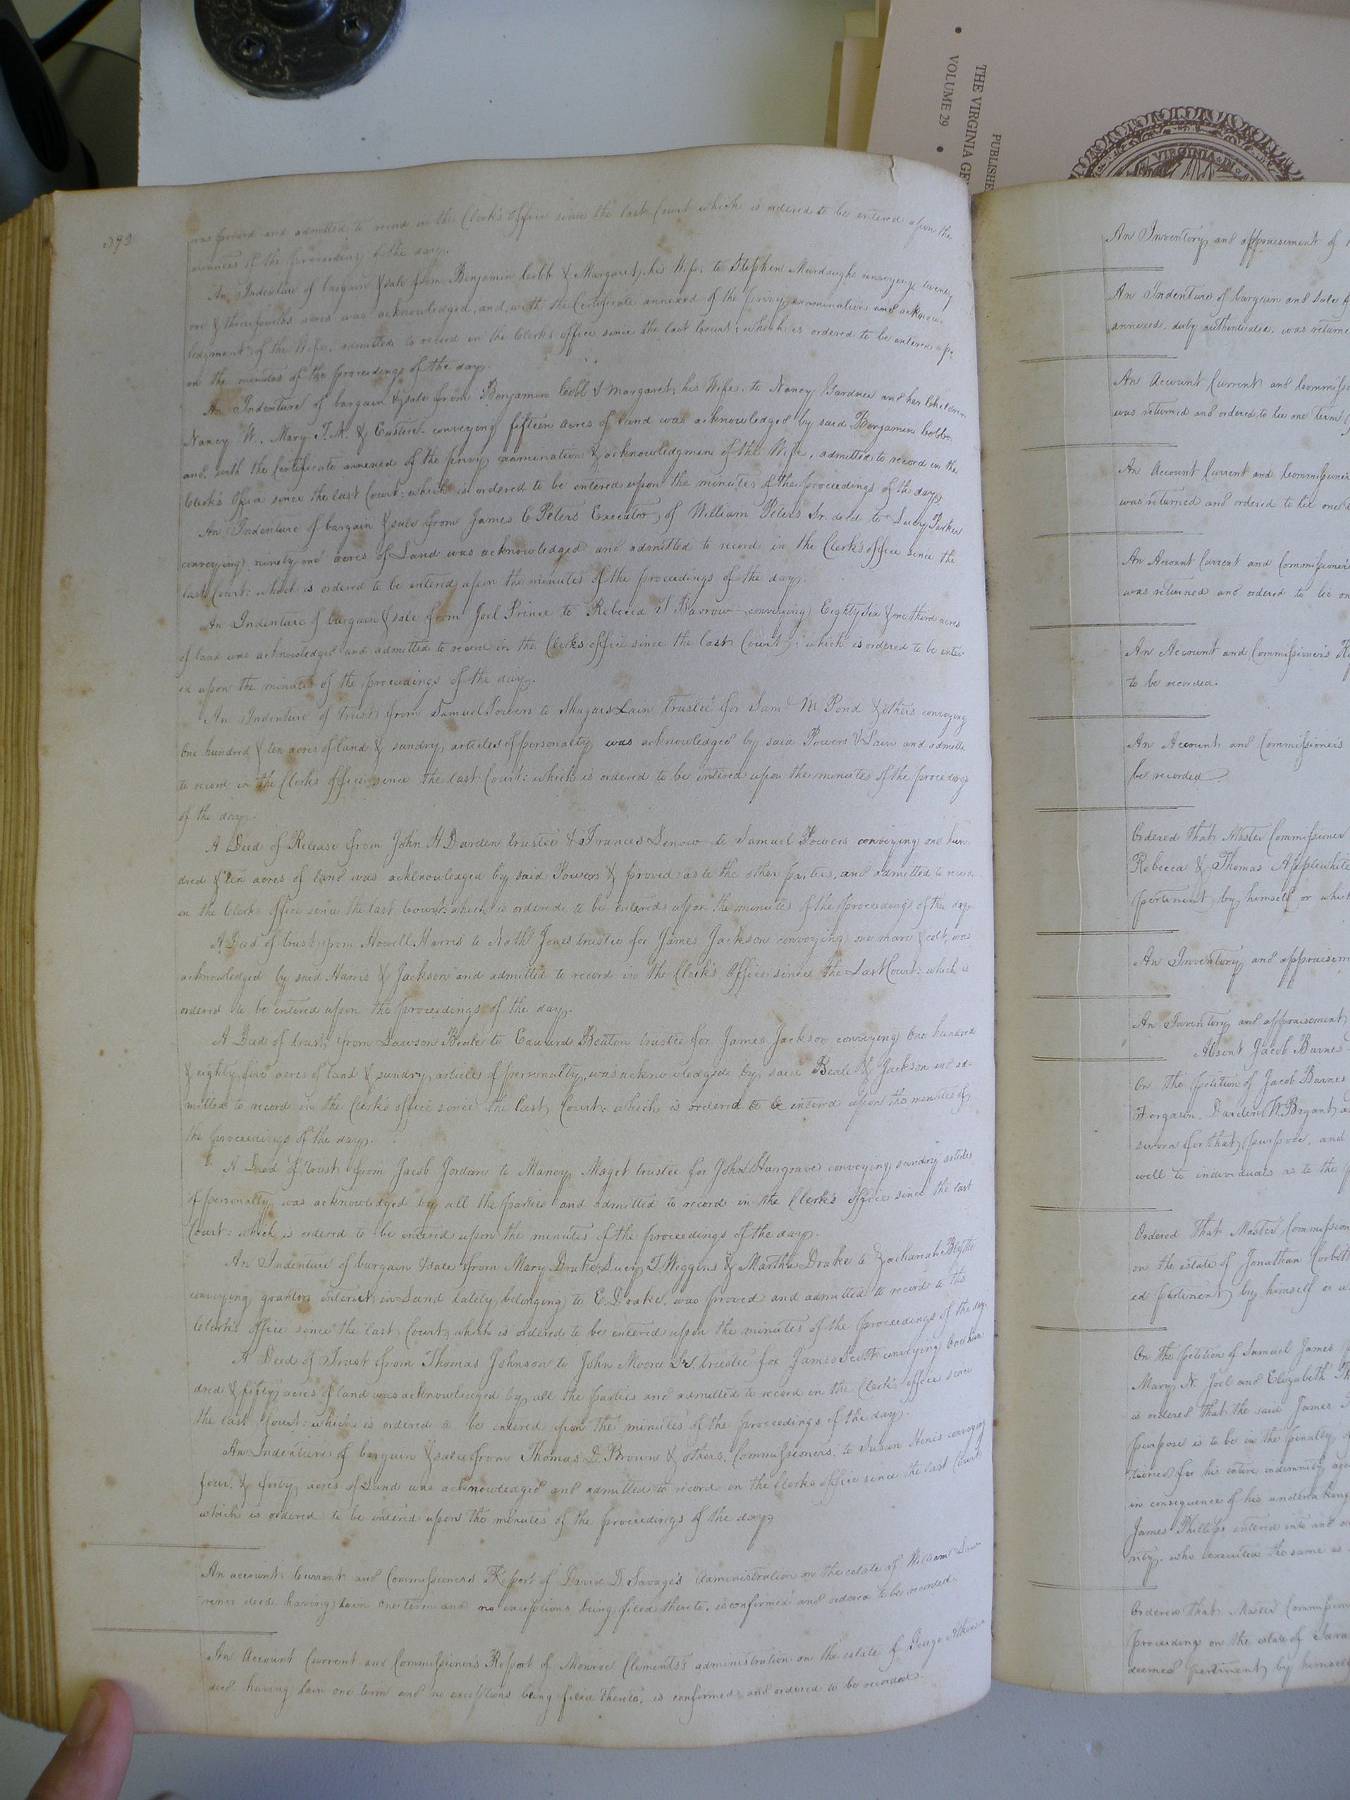 THE VIRGINIA GE
VOLUME 29
PUBLISHE
VIRGINIA
392
was proved and admitted to record in the Clerk's Office since the last Court which is ordered to be entered upon the
minutes of the proceedings of the day.
An Indenture of bargain & sale from Benjamin Cobb & Margaret, his Wife, to Stephen Murdaugh conveying twenty
one & three fourths acres was acknowledged, and with the Certificate annexed of the privy examination and acknow-
ledgment of the Wife, admitted to record in the Clerk's office since the last Court; which is ordered to be entered up-
on the minutes of the proceedings of the day.
An Indenture of bargain & sale from Benjamin Cobb & Margaret, his Wife, to Nancy Gardner and her Children
Nancy W. Mary conveying fifteen acres of land was acknowledged by said Benjamin Cobb
and with the Certificate annexed of the privy examination & acknowledgment of the Wife, admitted to record in the
Clerk's Office since the last Court: which is ordered to be entered upon the minutes of the proceedings of the day.
An Indenture of bargain & sale from James C Peters Executor of William Peters Sr. decd to Lucy Parker
conveying ninety one acres of Land was acknowledged and admitted to record in the Clerk's office since the
last Court: which is ordered to be entered upon the minutes of the proceedings of the day.
An Indenture of bargain & sale from Joel Prince to Rebecca Barrow conveying Eighty six & one third acres
of land was acknowledged and admitted to record in the Clerks office since the last Court: which is ordered to be enter-
ed upon the minutes of the proceedings of the day.
An Indenture of trust from Samuel Powers to Lain trustee for Sam M Pond & others conveying
One hundred & ten acres of land & sundry articles of personalty was acknowledged by said Powers & Lain and admitted
to record in the Clerks office since the last Court: which is ordered to be entered upon the minutes of the proceedings
of the day.
A Deed of Release from John H Darden trustee & Frances Denson to Samuel Powers conveying one hun-
dred & ten acres of land was acknowledged by said Powers & proved as to the other parties, and admitted to record
in the Clerks Office since the last Court: which is ordered to be entered upon the minutes of the proceedings of the day.
A Deed of trust from Howell Harris to Nath Jones trustee for James Jackson conveying one mare & colt, was
acknowledged by said Harris & Jackson and admitted to record in the Clerk's Office since the Last Court: which is
ordered to be entered upon the proceedings of the day.
A Deed of trust from Dawson Beale to Edward Beaton trustee for James Jackson conveying One hundred
& eighty five acres of land & sundry articles of personalty, was acknowledged by said Beale & Jackson and ad-
mitted to record in the Clerks office since the last Court: which is ordered to be entered upon the minutes of
the proceedings of the day.
A Deed of trust from Jacob Jordan to Maney Maget trustee for John Hargrave conveying sundry articles
of personalty was acknowledged by all the parties and admitted to record in the Clerk's Office since the last
Court: which is ordered to be entered upon the minutes of the proceedings of the day.
An Indenture of bargain & sale from Mary Drake, Lucy T. Wiggins & Martha Drake to Zachariah Blythe
conveying grantors interest in Land lately belonging to E. Drake, was proved and admitted to record in the
Clerks Office since the last Court, which is ordered to be entered upon the minutes of the proceedings of the day.
A Deed of Trust from Thomas Johnson to John Moore trustee for James Scott conveying One hun-
dred & fifty acres of land was acknowledged by all the parties and admitted to record in the Clerk's office since
the last Court: which is ordered to be entered upon the minutes of the proceedings of the day.
An Indenture of bargain & sale from Thomas D. Brown & others, Commissioners, to Susan Hines conveying
four & forty acres of Land was acknowledged and admitted to record in the Clerks office since the last Court
which is ordered to be entered upon the minutes of the proceedings of the day
An account Current and Commissioners Report of David D Savage's Administration on the estate of William Law-
rence decd. having lain one term and no exceptions being filed thereto, is confirmed and ordered to be recorded
An Account Current and Commissioners Report of Monroe Clements's administration on the estate of George Atkins
decd having lain one term and no exceptions being filed thereto, is confirmed and ordered to be recorded
An Inventory and appraisement of
An Indenture of bargain and sale
annexed, duly authenticated, was returne
An Account Current and Commiss
was returned and ordered to lie one term
An Account Current and Commissioners
was returned and ordered to lie one
An Account Current and Commissioners
was returned and ordered to lie on
An Account and Commissioner's
to be recorded.
An Account and Commissioners
be recorded.
Ordered that Master Commissioner
Rebecca & Thomas Applewhite
pertinent by himself or which
An Inventory and appraisem
An Inventory and appraisement
Absent Jacob Barnes
On the petition of Jacob Barnes
Ferguson, Darden W. Bryant
sworn for that purpose, and
well to individuals as to the p
Ordered That Master Commission
on the estate of Jonathan Corbitt
ed pertinent by himself or
On the petition of Samuel James
Mary N. Joel and Elizabeth
is ordered that the said James
purpose is to be in the penalty
tioned for his entire indemnity
in consequence of his undertaking
James Phillips entered into and
rity, who executed the same as
Ordered that Master Commission
proceeding on the estate of Sarah
deemed pertinent by himself